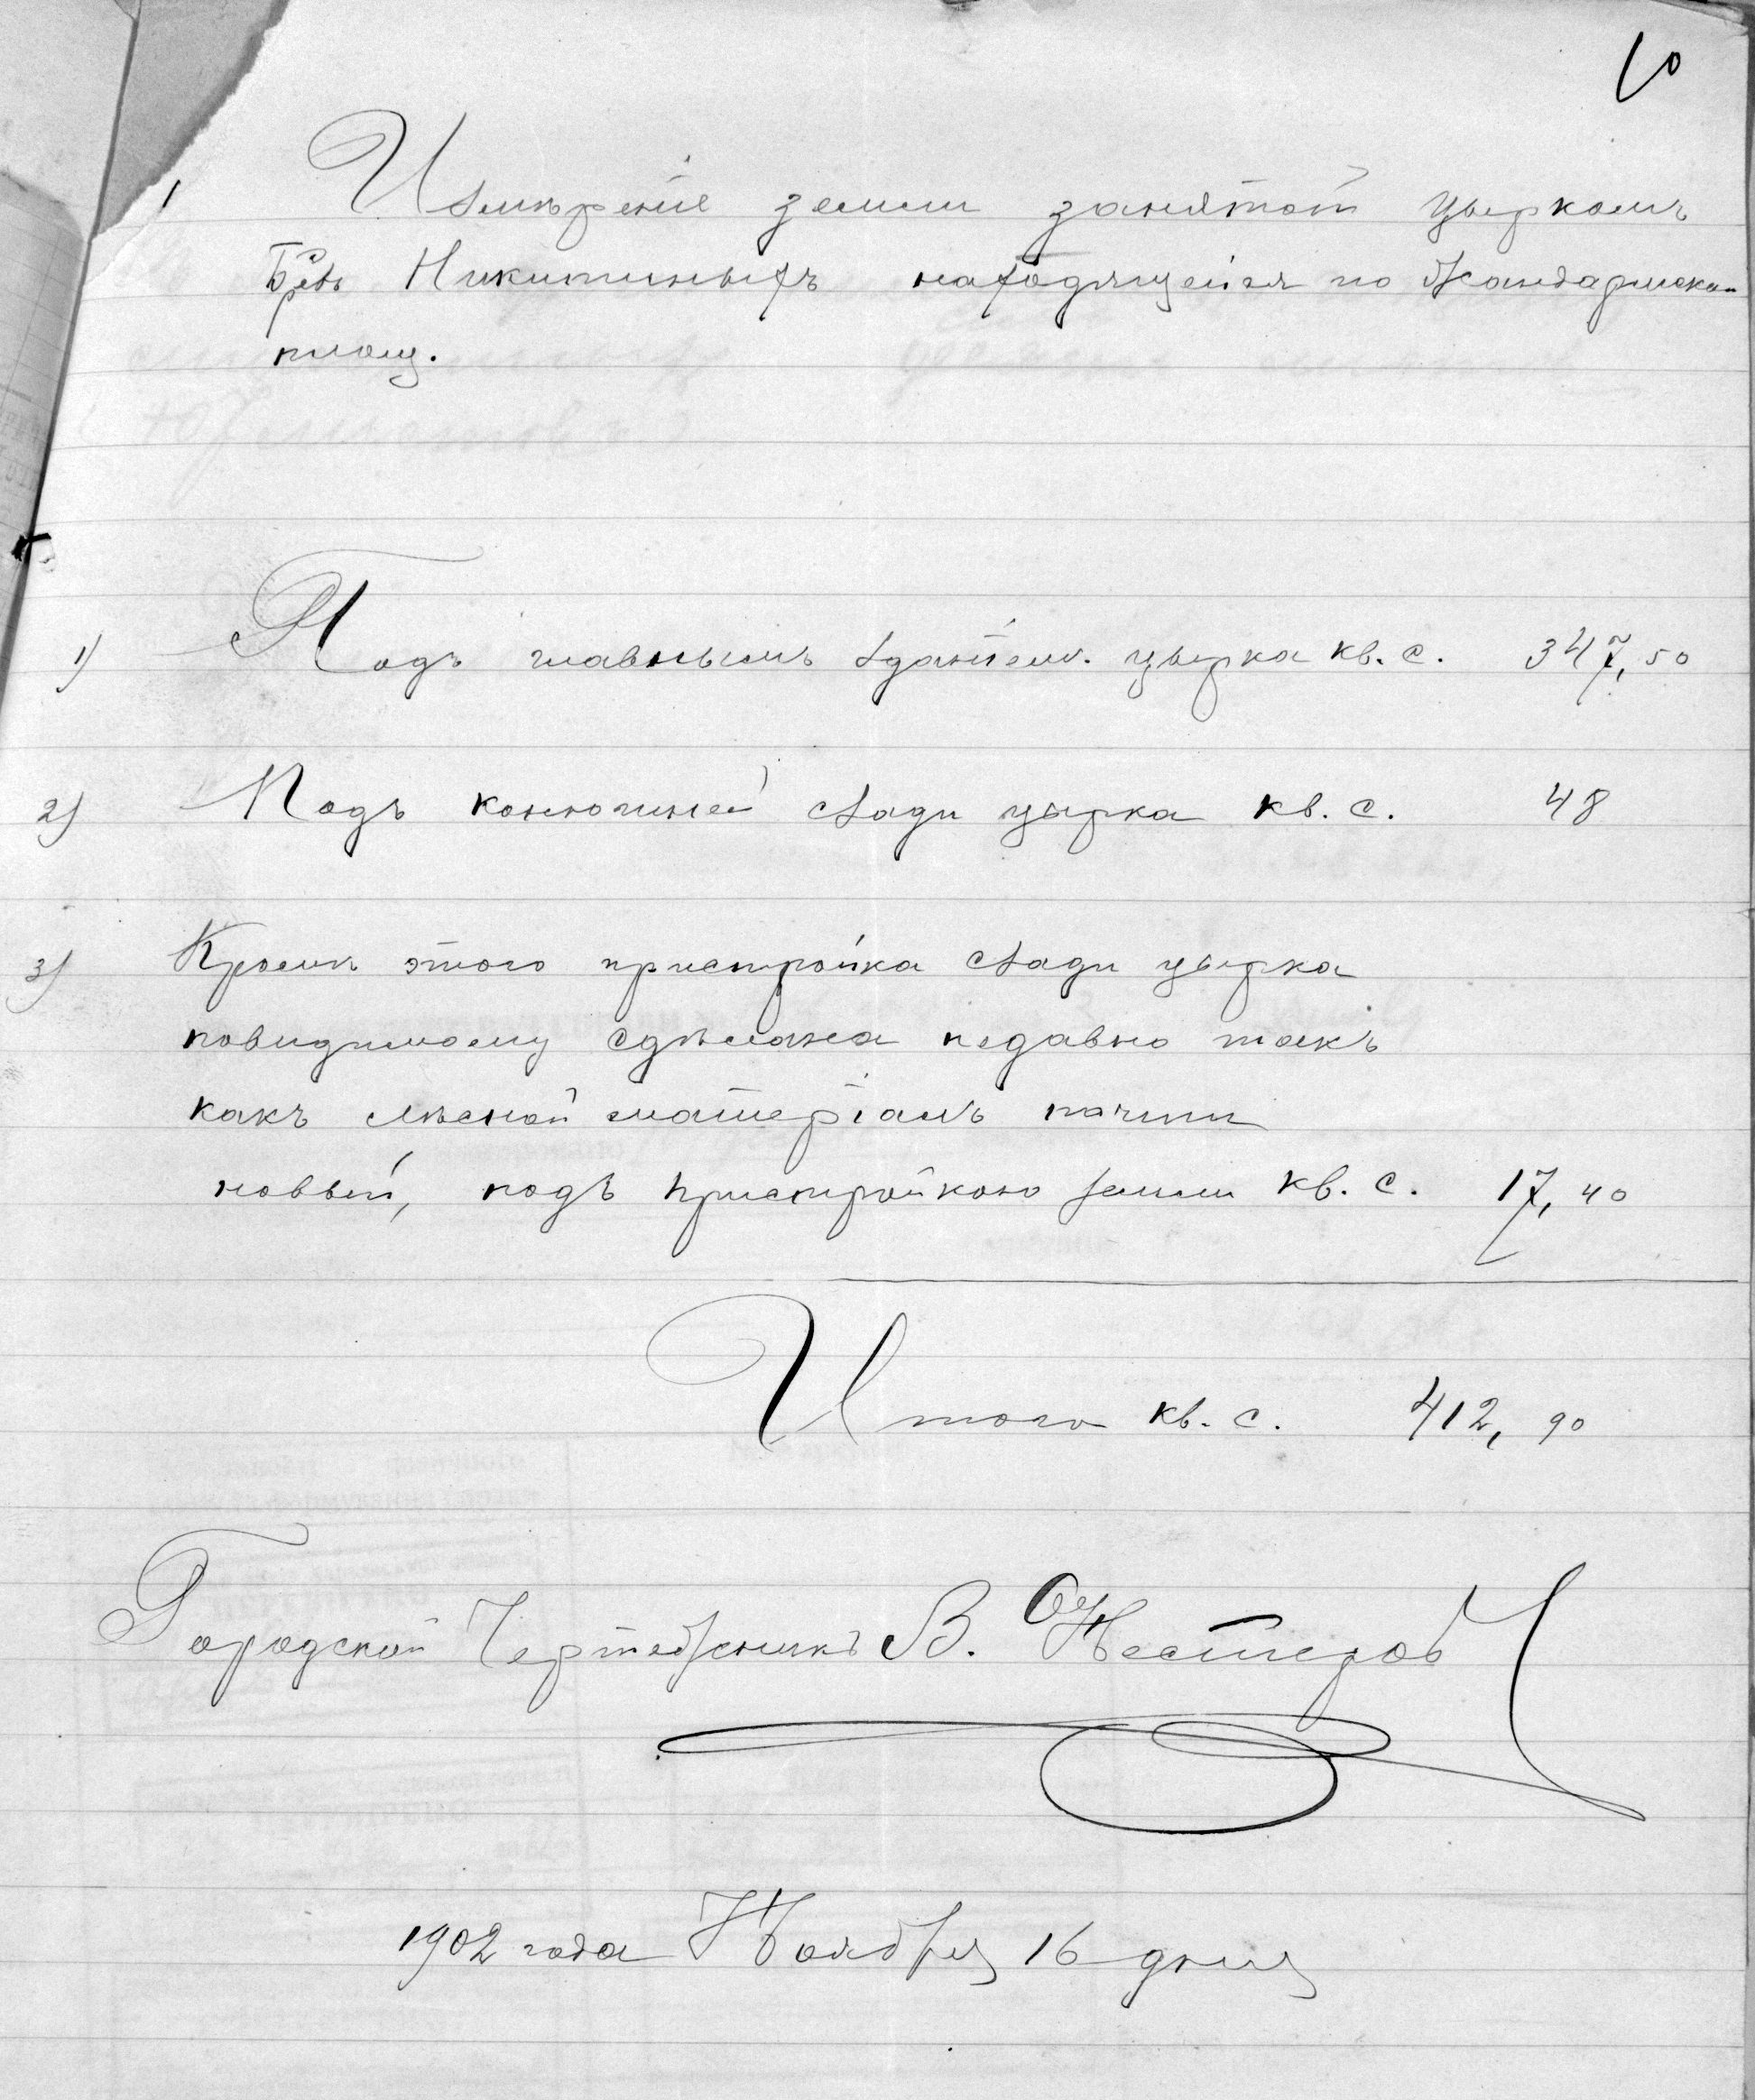 10
Измѣреніе земли занятой цыркомъ
Братьевъ Никитиныхъ находящейся по Жандармской
площ.
1) Подъ главнымъ зданіем. цырка кв. с. 347,50
2) Подъ конюшней сзади цырка кв. с. 48
3) Кромѣ этого пристройка сзади цырка
повидимому сдѣлана недавно такъ
какъ лѣсной матеріалъ почти
новый, подъ пристройкою земли кв. с. 17,40
Итого кв. с. 412,90
Городской Чертежникъ В. Нестеровъ
1902 года Ноября 16 дня